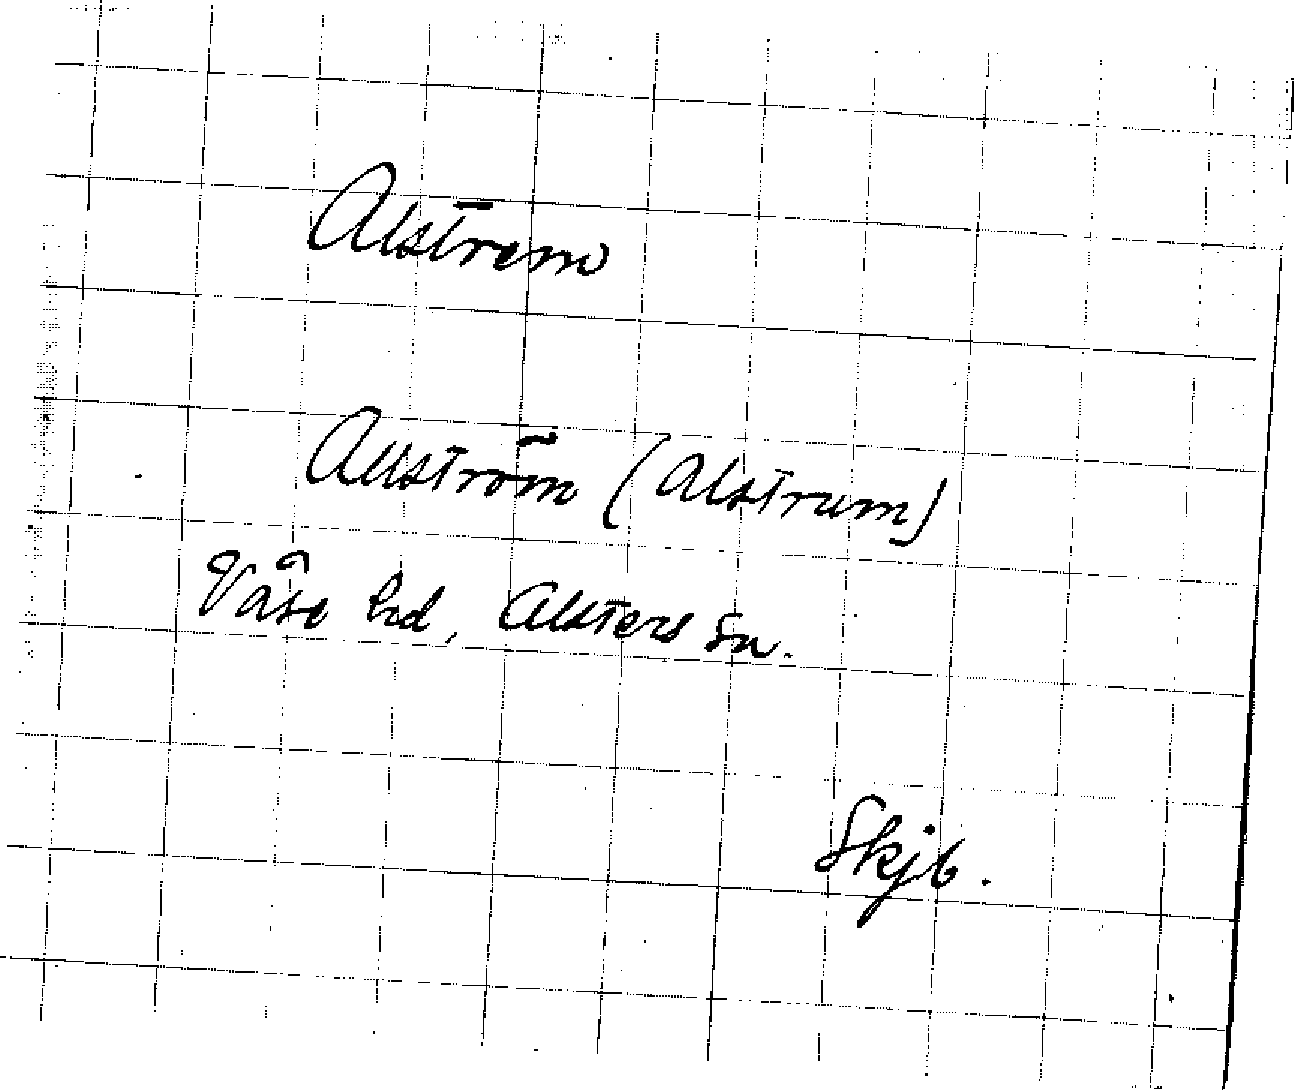 Alstrem
Allström (Alstrum)
Väse hd, Alsters sn.
Skjb.